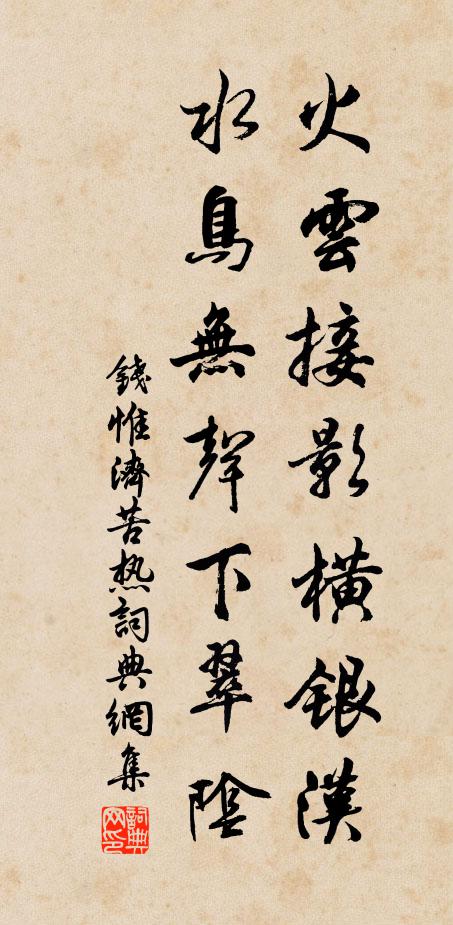 火雲接影橫銀漢
水鳥無聲下翠陰
錢惟濟苦热詞典網集
詞典网印